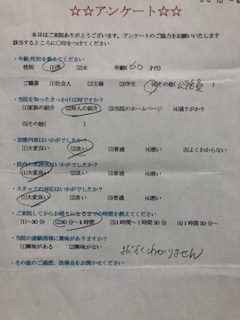 ☆☆アンケート☆☆
本日はご来院ありがとうございます。アンケートのご協力をお願いいたします
該当するところに○印をつけてください
・年齢,性別を教えてください
性別 (1)男 (2)女 年齢(60 才代)
ご職業 (1)社会人 (2)主婦 (3)学生 (4)その他(公務員)
・当院を知ったきっかけは何ですか?
(1)家族の紹介 (2)知人の紹介 (3)当院のホームページ (4)通りがかり
(5)その他( )
・治療内容はいかがでしたか?
(1)大変良い (2)良い (3)普通 (4)悪い (5)よくわからない
・院内の雰囲気はいかがでしたか?
(1)大変良い (2)良い (3)普通 (4)悪い
・スタッフの対応はいかがでしたか?
(1)大変良い (2)良い (3)普通 (4)悪い
・ご来院してからお帰りになるまでの時間を教えてください
(1)~30分 (2)30分~1時間 (3)1時間~1時間30分 (4)1時間30分~
・当院の運動指導に興味がありますか?
(1)興味がある (2)興味がない
・その他のご感想、改善点をお聞かせください